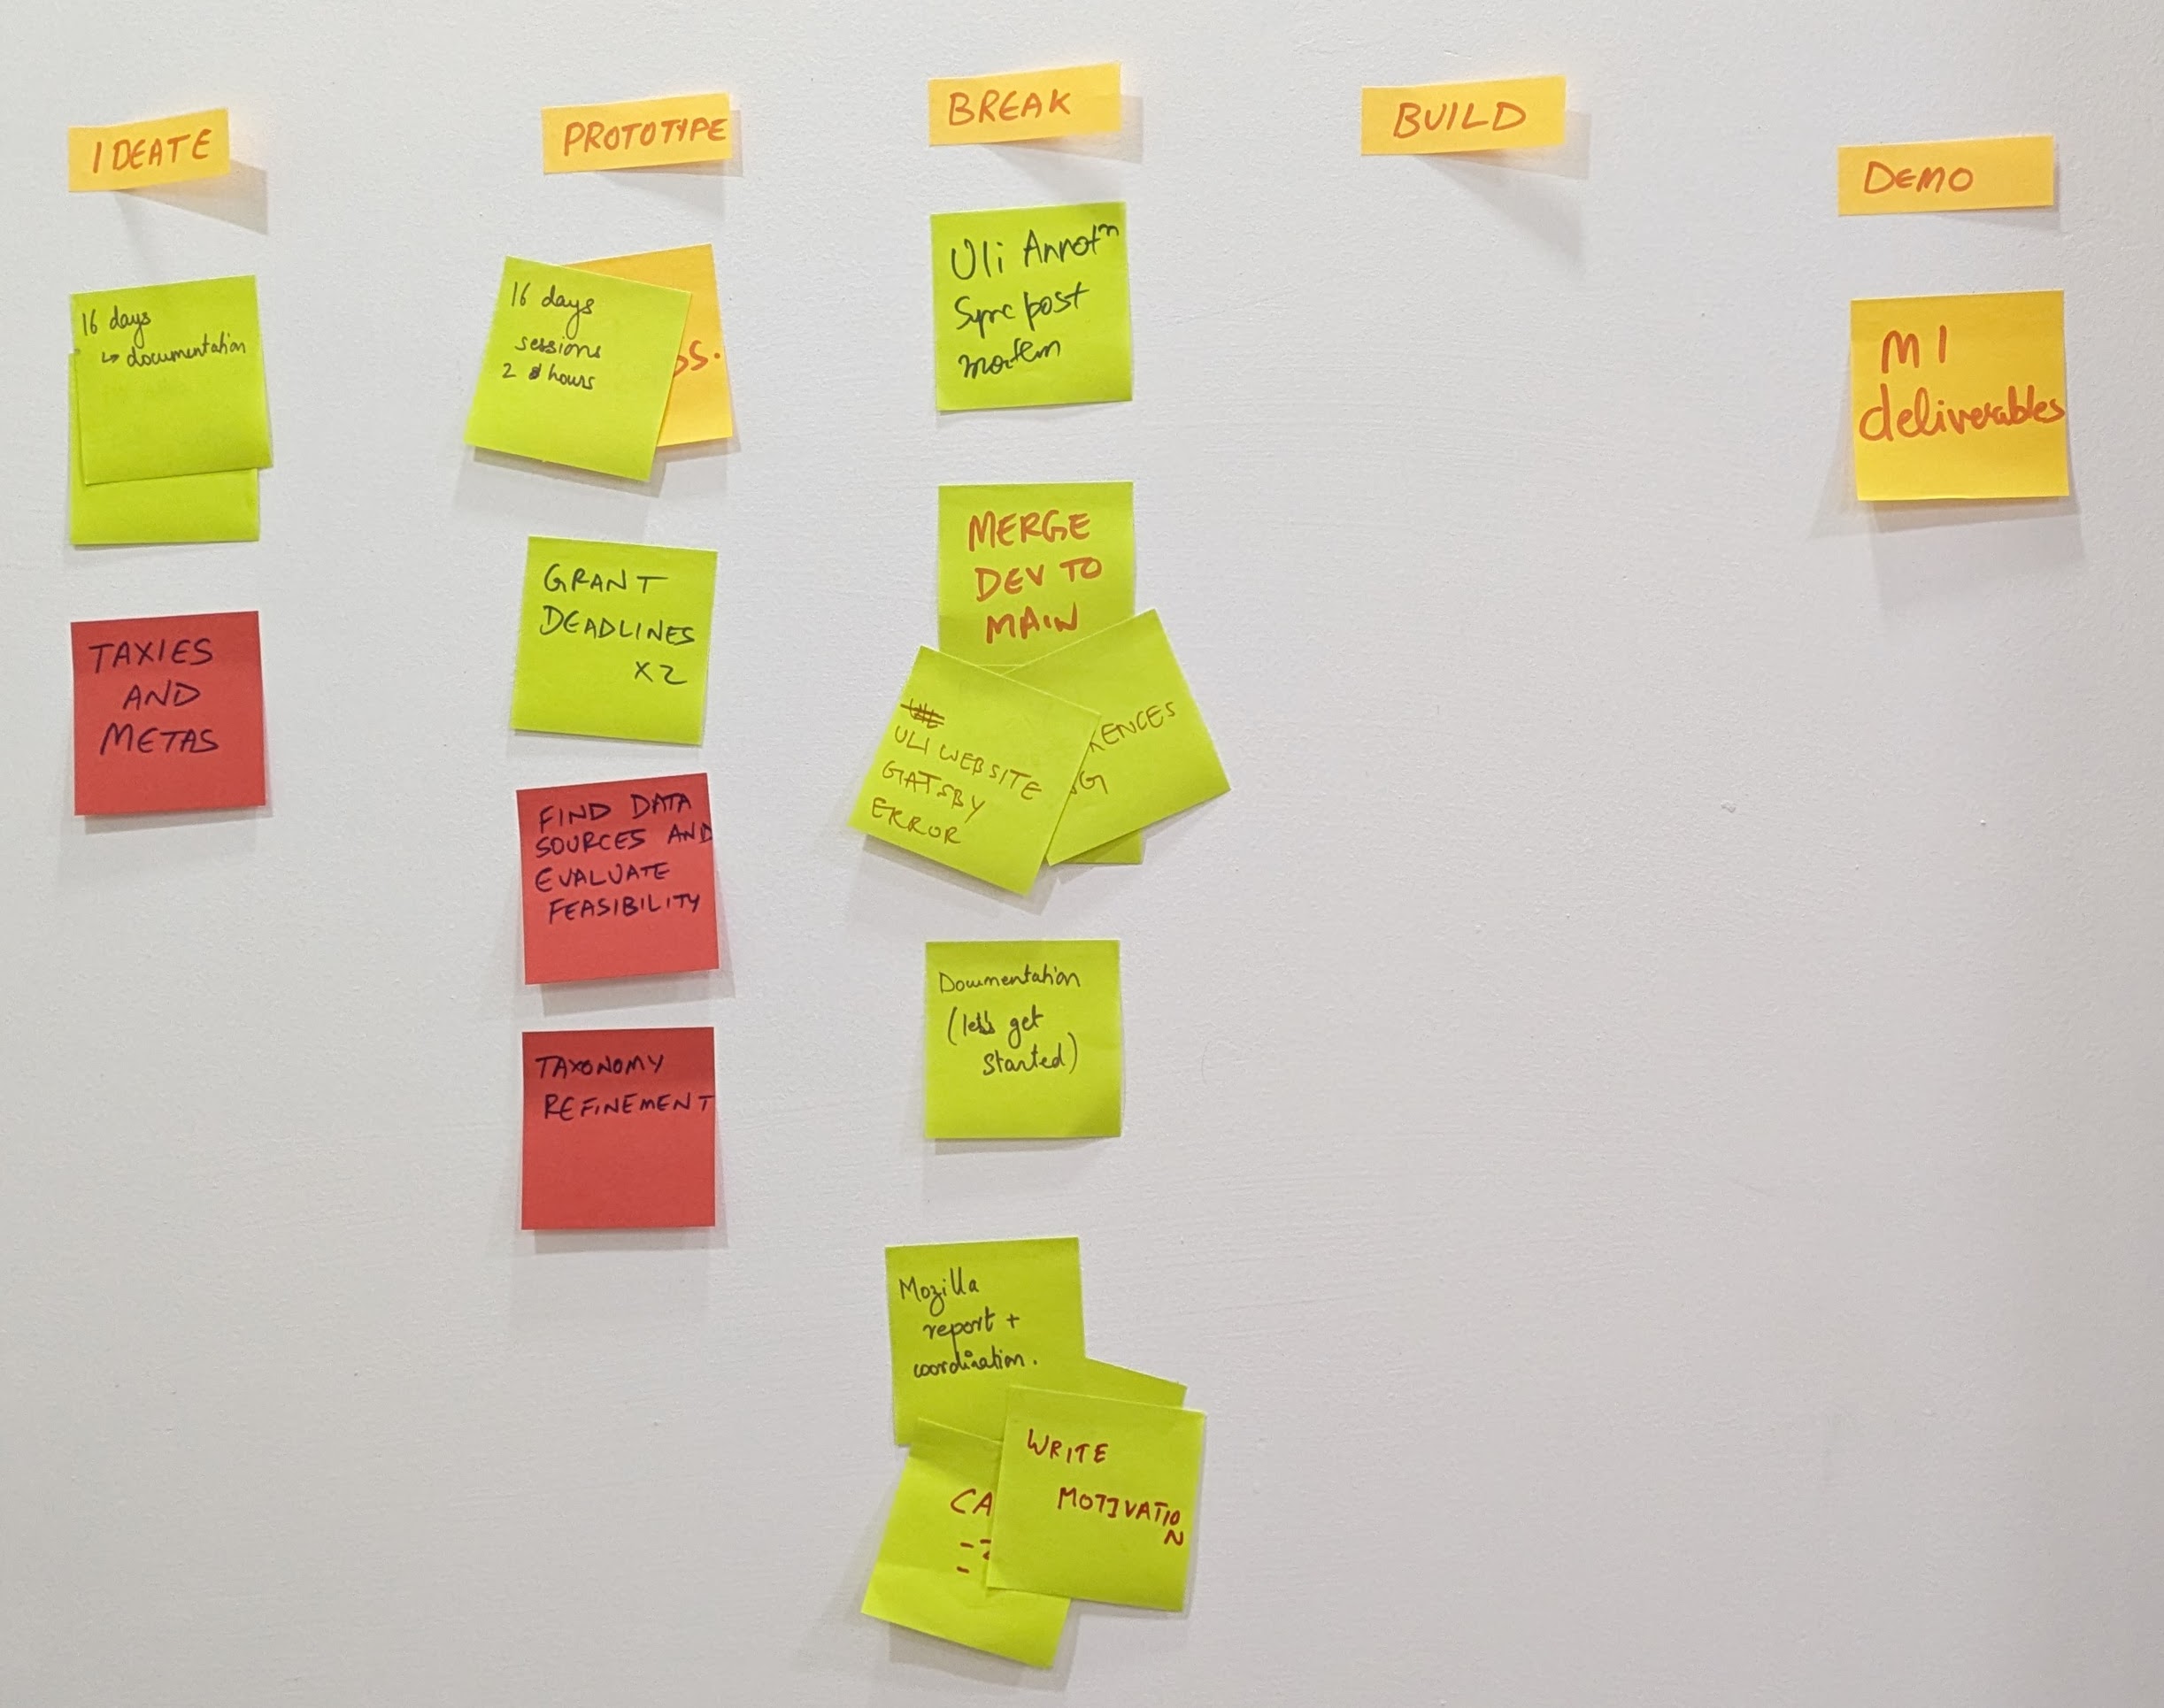 IDEATE
PROTOTYPE
BREAK
BUILD
DEMO
16 days
↳ documentation
TAXIES
AND
METAS
16 days
sessions
2 hours
GRANT
DEADLINES
X2
FIND DATA
SOURCES AND
EVALUATE
FEASIBILITY
TAXONOMY
REFINEMENT
Uli Annotn
Sync post
mortem
MERGE
DEV TO
MAIN
ULI WEBSITE
GATSBY
ERROR
Documentation
(let's get
started)
Mozilla
report +
coordination.
WRITE
MOTIVATIO
N
M1
deliverables